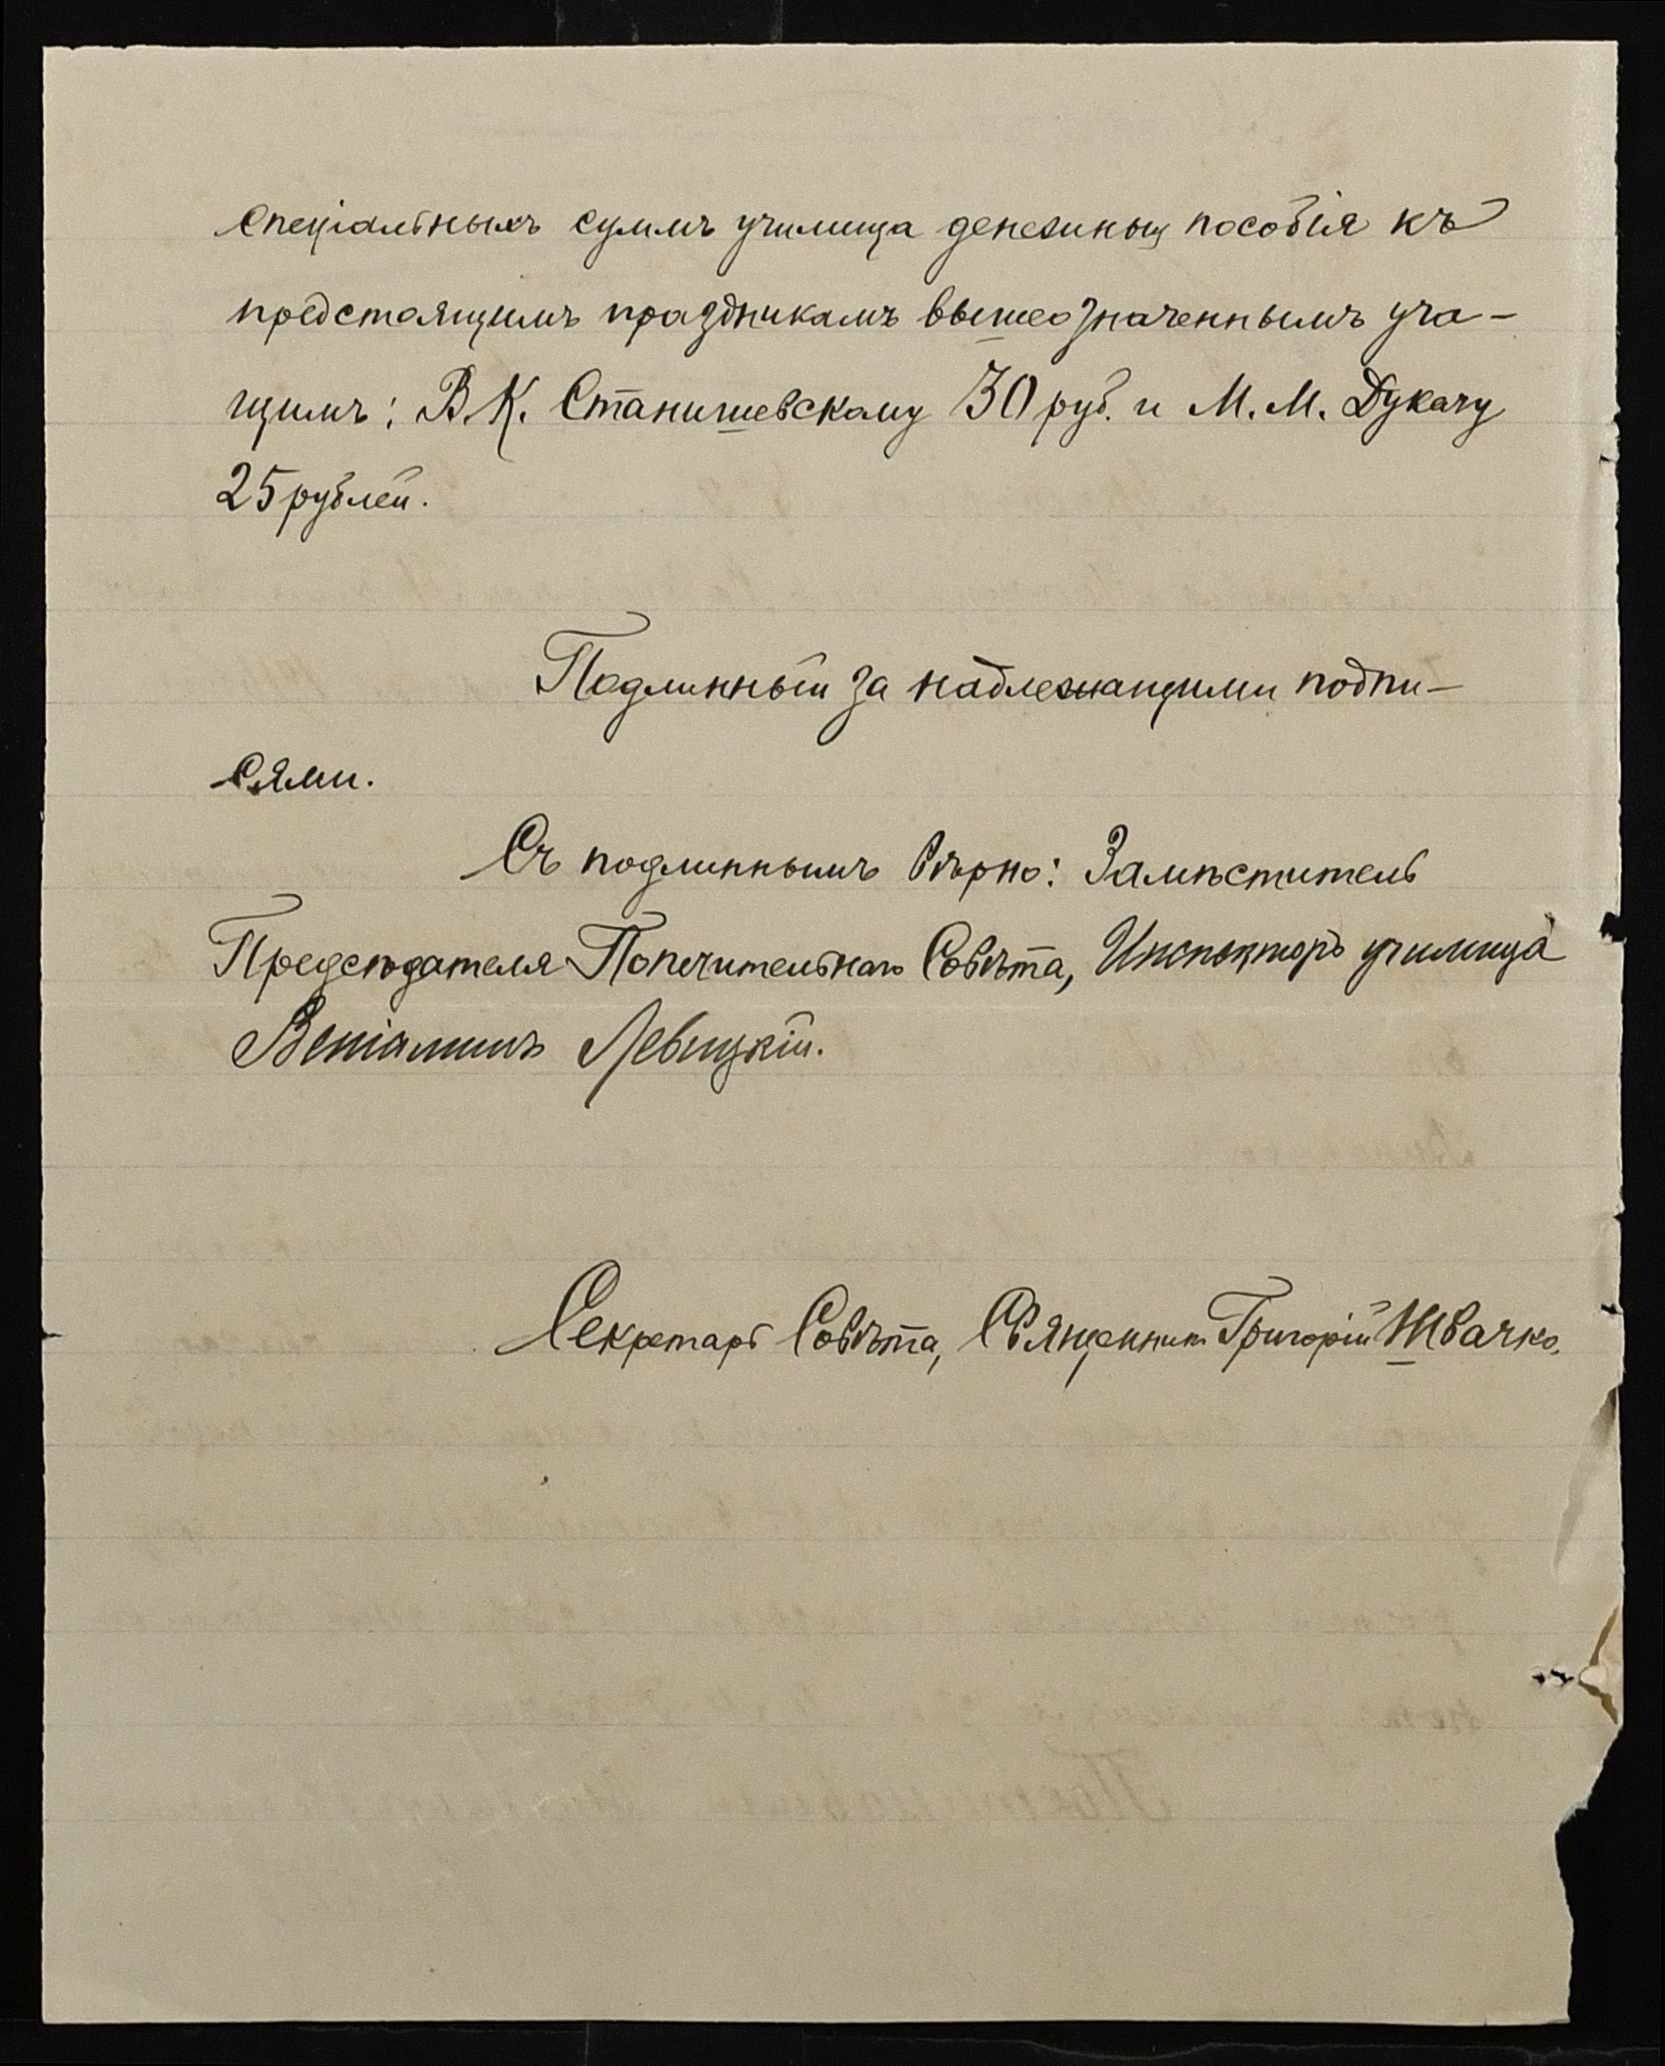 спеціальныхъ суммъ училища денежныя пособія къ
предстоящимъ праздникамъ вышеозначеннымъ уча-
щимъ: В. К. Станишевскому 30 руб. и М. М. Дукачу
25 рублей.
Подлинный за надлежащими подпи-
сями.
Съ подлиннымъ вѣрно: Замѣститель
Предсѣдателя Попечительнаго Совѣта, Инспекторъ училища
Веніаминъ Левицкій.
Секретарь Совѣта, Священникъ Григорій Жвачко.